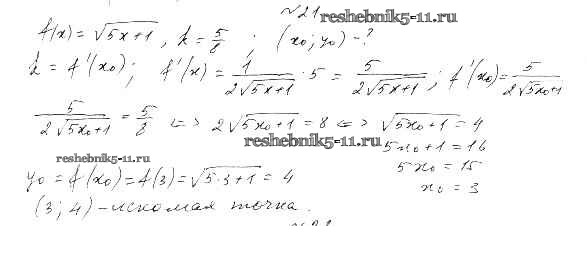 №21
reshebnik5-11.ru
f(x) = √(5x+1), k = 5/8 ; (x₀; y₀) - ?
k = f'(x₀); f'(x) = 1/(2√(5x+1)) · 5 = 5/(2√(5x+1)); f'(x₀) = 5/(2√(5x₀+1))
5/(2√(5x₀+1)) = 5/8 <=> 2√(5x₀+1) = 8 <=> √(5x₀+1) = 4
reshebnik5-11.ru
5x₀+1 = 16
reshebnik5-11.ru
5x₀ = 15
y₀ = f(x₀) = f(3) = √(5·3+1) = 4
x₀ = 3
(3; 4) - искомая точка.